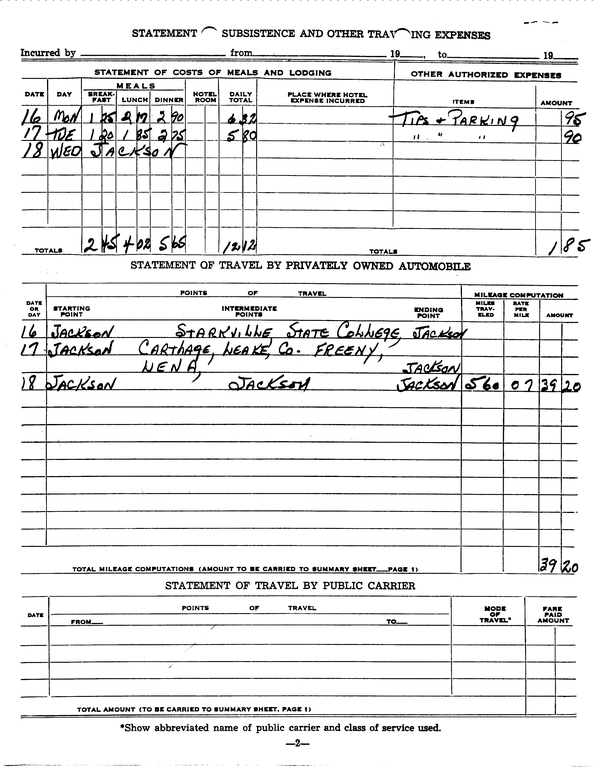 STATEMENT SUBSISTENCE AND OTHER TRAV ING EXPENSES
Incurred by from 19 , to 19
STATEMENT OF COSTS OF MEALS AND LODGING OTHER AUTHORIZED EXPENSES
DATE DAY MEALS HOTEL ROOM DAILY TOTAL PLACE WHERE HOTEL EXPENSE INCURRED ITEMS AMOUNT
BREAK-FAST LUNCH DINNER
16 MON 1 25 2 17 2 90 6 32 TIPS + PARKING 95
17 TUE 1 20 1 85 2 75 5 80 " " " 90
18 WED JACKSON
TOTALS 2 45 4 02 5 65 12 12 TOTALS 1 85
STATEMENT OF TRAVEL BY PRIVATELY OWNED AUTOMOBILE
DATE OR DAY POINTS OF TRAVEL MILEAGE COMPUTATION
STARTING POINT INTERMEDIATE POINTS ENDING POINT MILES TRAV-ELED RATE PER MILE AMOUNT
16 JACKSON STARKVILLE, STATE COLLEGE, JACKSON
17 JACKSON CARTHAGE, LEAKE, CO. FREENY,
LENA, JACKSON
18 JACKSON JACKSON JACKSON 560 07 39 20
TOTAL MILEAGE COMPUTATIONS (AMOUNT TO BE CARRIED TO SUMMARY SHEET—PAGE 1) 39 20
STATEMENT OF TRAVEL BY PUBLIC CARRIER
DATE POINTS OF TRAVEL MODE OF TRAVEL* FARE PAID AMOUNT
FROM— TO—
TOTAL AMOUNT (TO BE CARRIED TO SUMMARY SHEET, PAGE 1)
*Show abbreviated name of public carrier and class of service used.
—2—